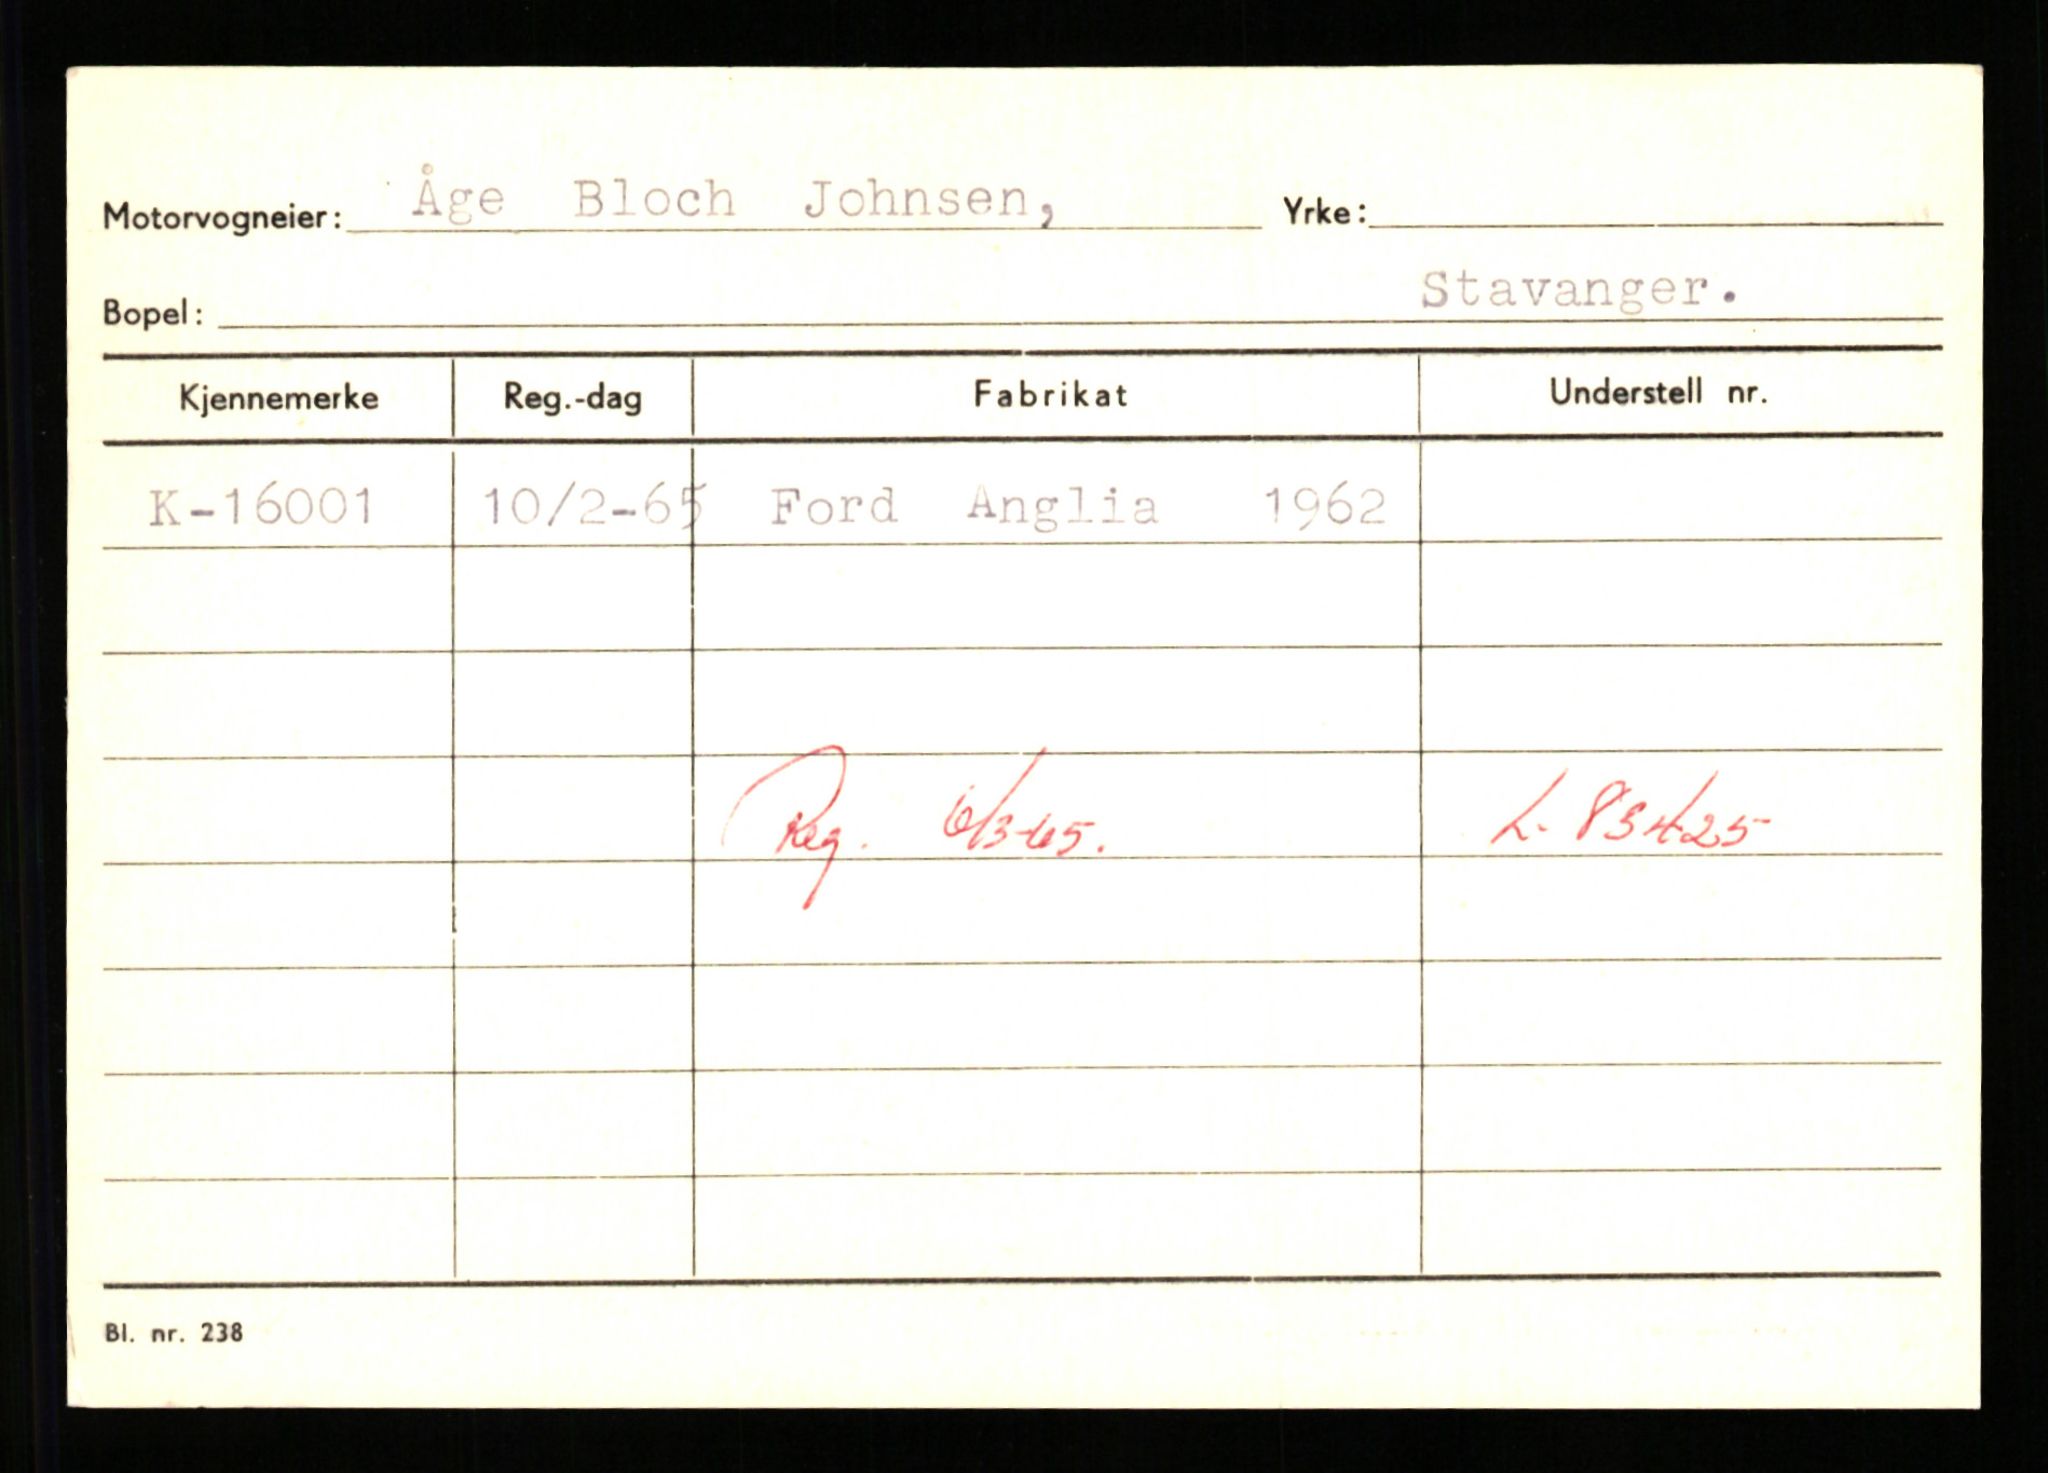 Motorvogneier: Åge Bloch Johnsen, Yrke:
Bopel: Stavanger.
Kjennemerke Reg.-dag Fabrikat Understell nr.
K-16001 10/2-65 Ford Anglia 1962
Reg. 6/3-65. L. 83425
Bl. nr. 238